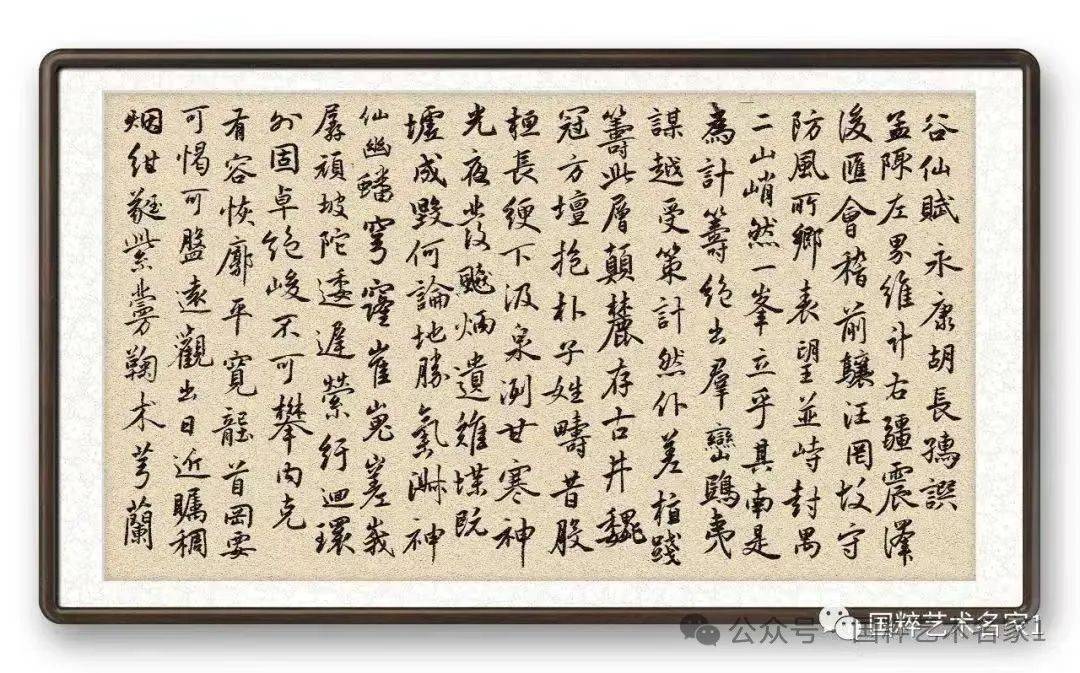 谷仙賦永康胡長孺譔
孟陬左界維計右疆震澤
後匯會稽前驤汪罔故守
防風所鄉表望並峙封禺
二山峭然一峯立乎其南是
為計籌絕出羣巒鴟夷
謀越受策計然仆差植踐
籌此層顛麓存古井魏
冠方壇抱朴子姓疇昔股
極長綆下汲泉洌甘寒神
光夜發颷炳遺雉堞既
墟成毀何論地勝氣淋神
仙幽蟠穹窿崔嵬嵳峩
孱頑坡陀逶遲縈行迴環
外固卓絕峻不可攀內克
有容恢廓平寬龍首岡要
可愒可盤遠觀出日近矚稠
烟紺蕤紫蔓鞠术芎蘭
公众号·国粹艺术名家1
国粹艺术名家1